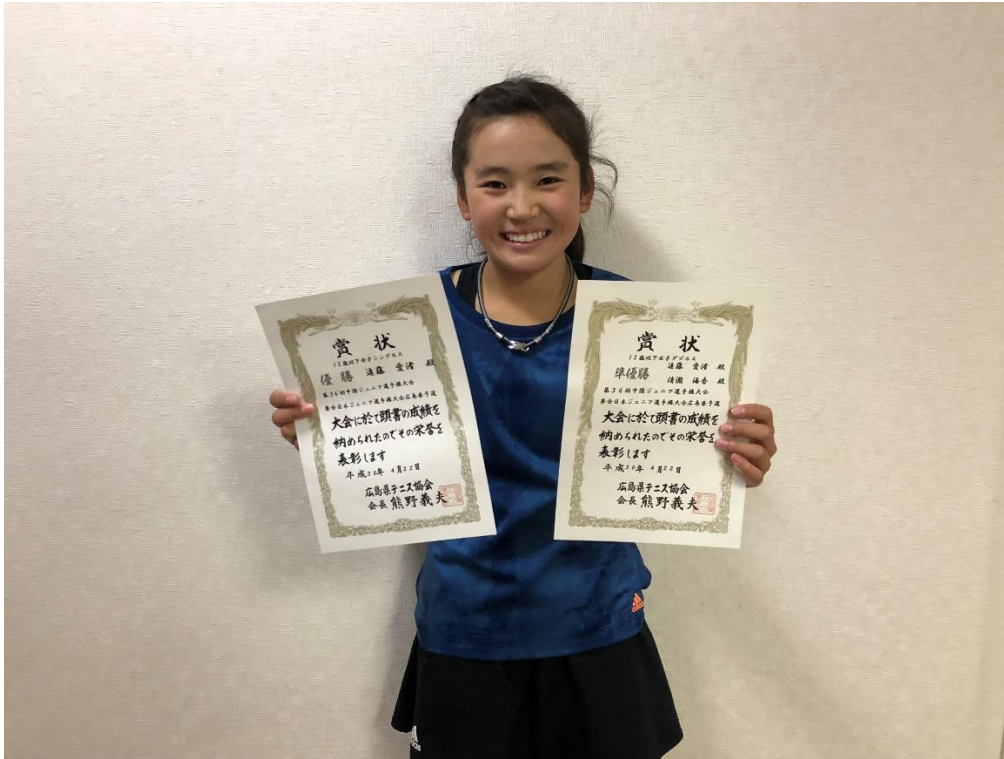 賞状
12歳以下女子シングルス
優勝 遠藤 愛渚 殿
第36回中国ジュニア選手権大会
兼全日本ジュニア選手権大会広島県予選
大会に於て頭書の成績を
納められたのでその栄誉を
表彰します
平成30年 4月22日
広島県テニス協会
会長 熊野義夫
賞状
12歳以下女子ダブルス
準優勝 遠藤 愛渚 殿
清瀧 海香 殿
第36回中国ジュニア選手権大会
兼全日本ジュニア選手権大会広島県予選
大会に於て頭書の成績を
納められたのでその栄誉を
表彰します
平成30年 4月22日
広島県テニス協会
会長 熊野義夫
adidas